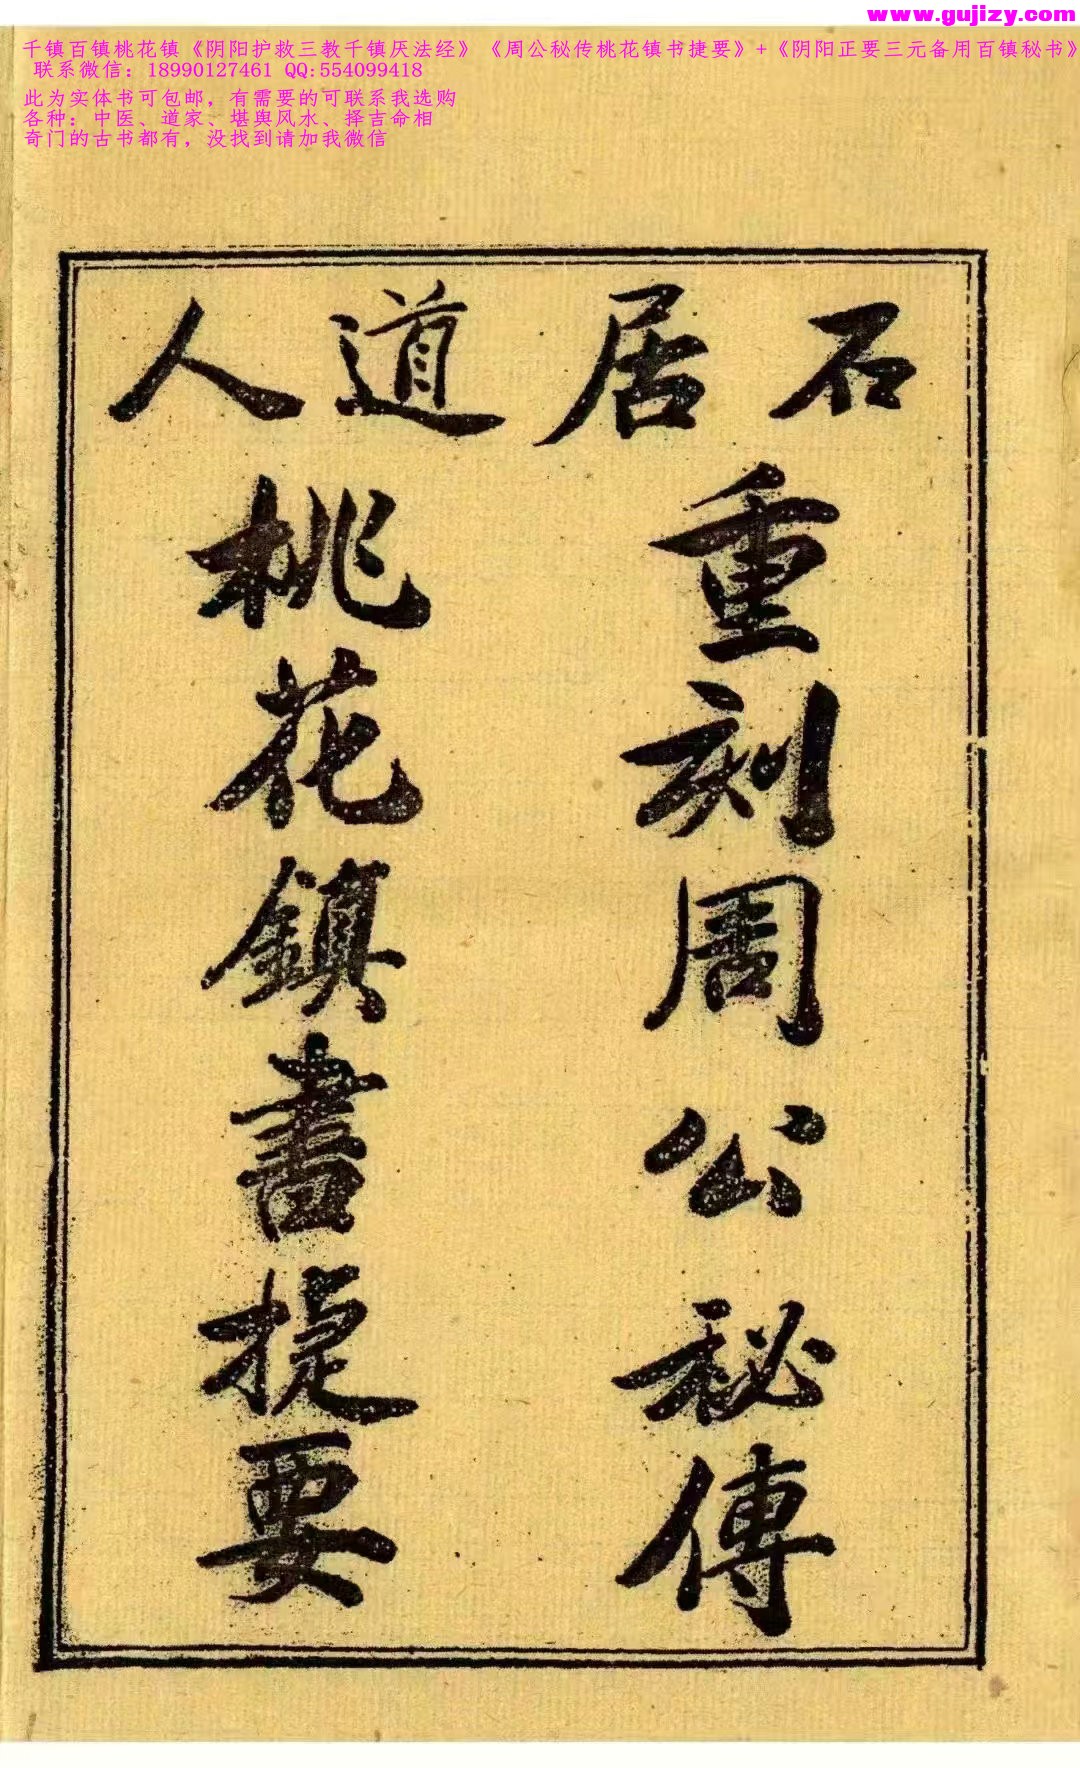 www.gujizy.com
千镇百镇桃花镇《阴阳护救三教千镇厌法经》《周公秘传桃花镇书捷要》+《阴阳正要三元备用百镇秘书》
联系微信：18990127461 QQ:554099418
此为实体书可包邮，有需要的可联系我选购
各种：中医、道家、堪舆风水、择吉命相
奇门的古书都有，没找到请加我微信
石居道人
重刻周公秘傳
桃花鎮書捷要